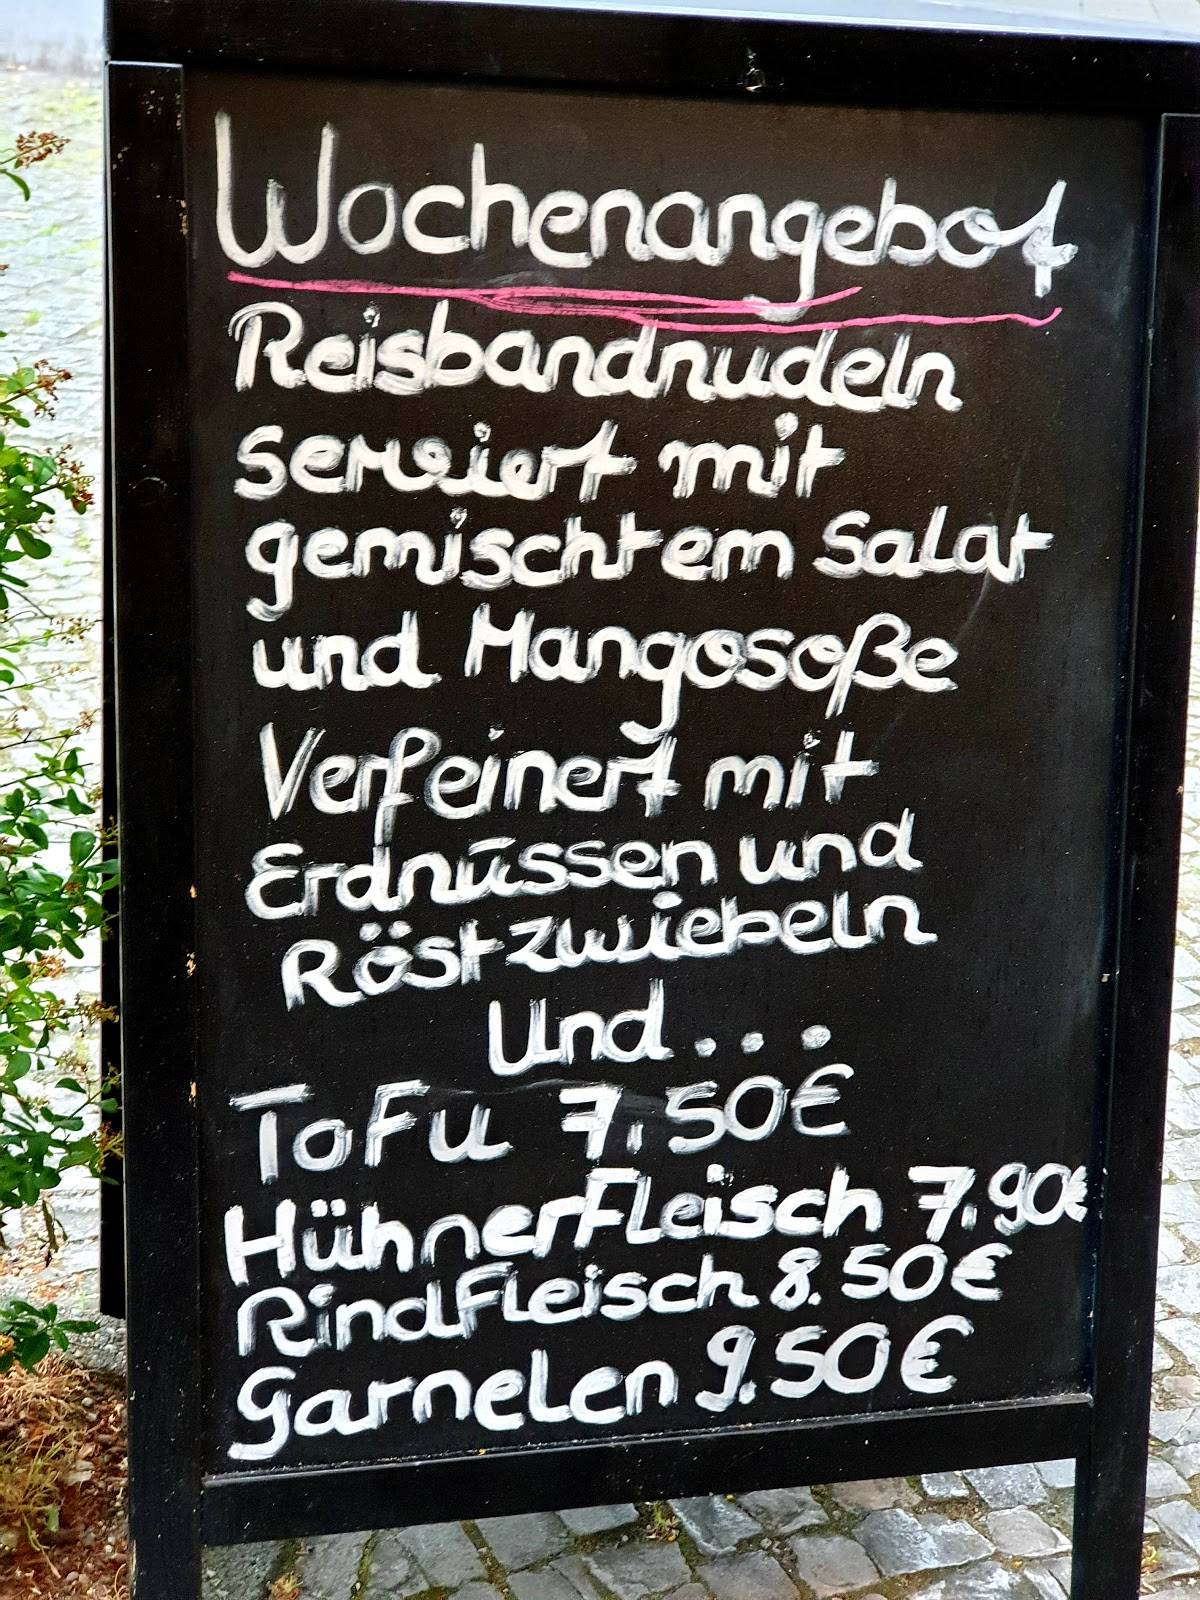 Wochenangebot
Reisbandnudeln
serviert mit
gemischtem Salat
und Mangosoße
Verfeinert mit
Erdnüssen und
Röstzwiebeln
Und...
Tofu 7,50€
Hühnerfleisch 7,90€
Rindfleisch 8.50€
Garnelen 9.50€